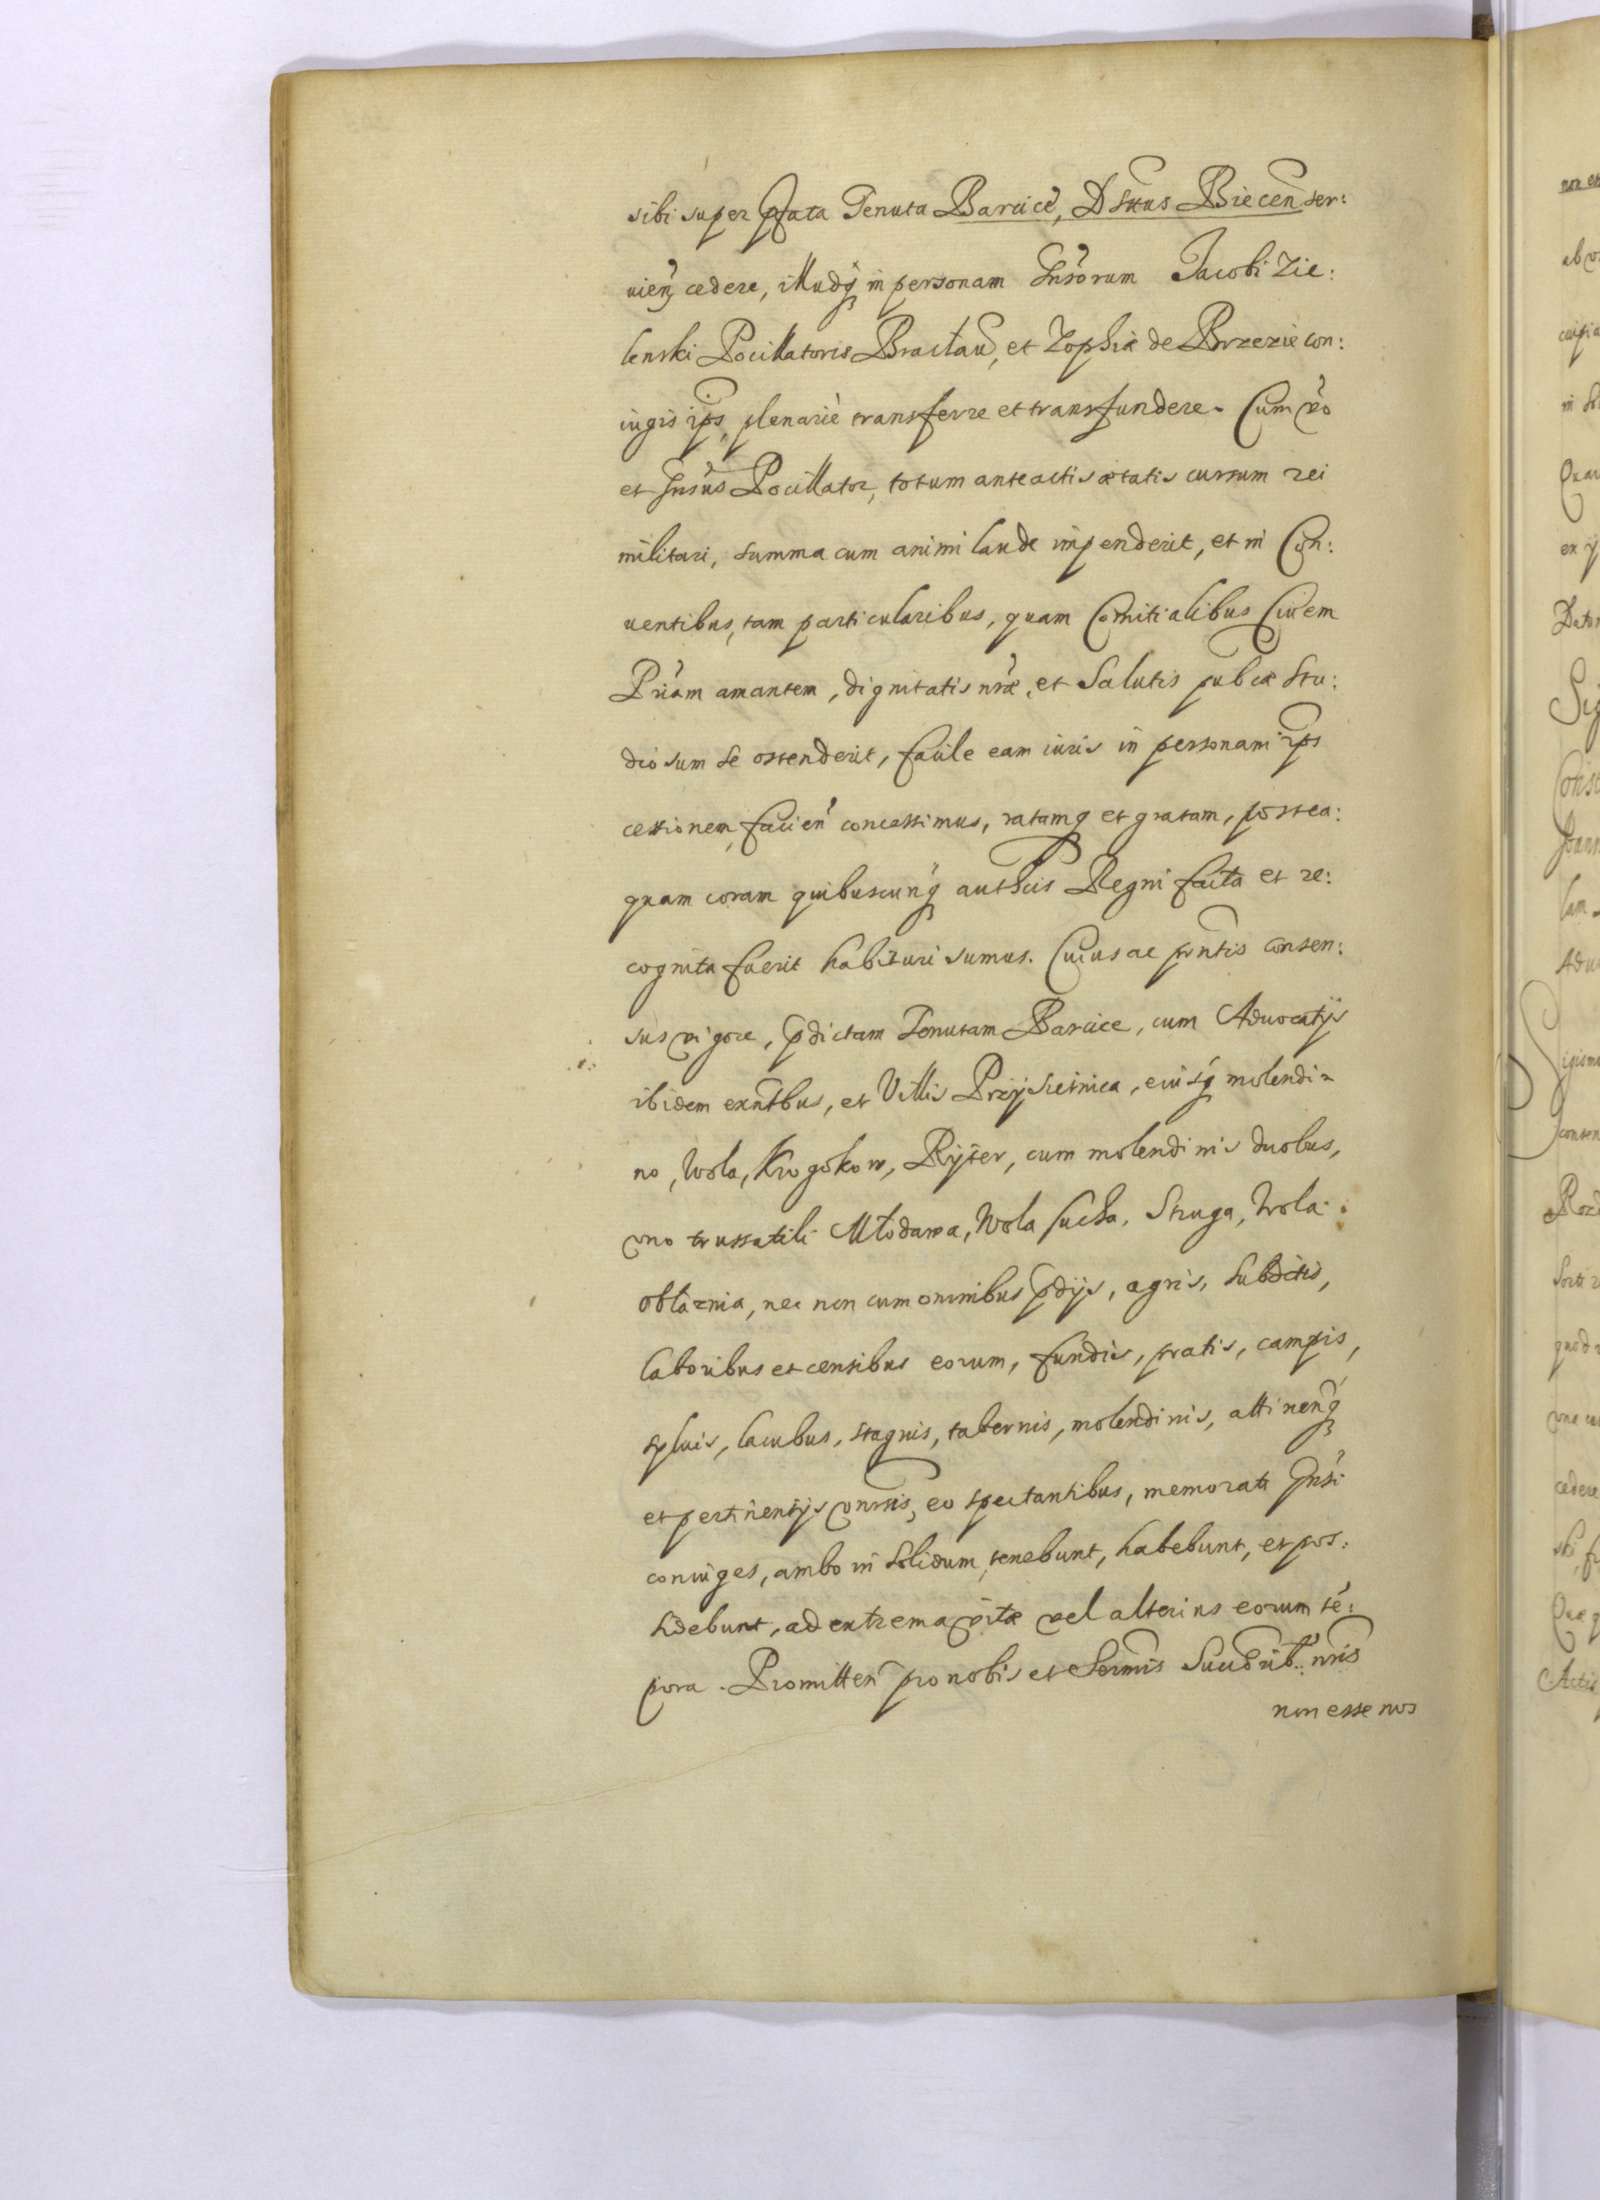 sibi super pfata Tenuta Barcice, Dstrus Biecen ser:
uien, cedere, illudq in personam Gnsorum Jacobi Zie:
lenski Pocillatoris Braclau, et Zophiæ de Brzezie con:
iugis ips, plenariè transferre et transfundere. Cum vo
et Gnsus Pocillator, totum anteactis ætatis cursum rei
militari, summa cum animi laude impenderit, et in Con:
uentibus, tam particularibus, quam Comitialibus Ciuem
Priam amantem, dignitatis nræ, et Salutis pubcæ Stu:
diosum se ostenderit, facile eam iuris in personam ips
cessionem, facien concessimus, ratamq et gratam, postea:
quam coram quibuscunq authcis Regni facta et re:
cognita fuerit habituri sumus. Cuius ac pntis consen:
sus vigore, pdictam Tenutam Barcice, cum Aduocatijs
ibidem exntbus, et Villis Przÿsietnica, eiusq molendi=
no, Wola, Krogokow, Rÿter, cum molendinis duobus,
vno trussatili Młodawa, Wola sucha, Struga, Wola
obłaznia, nec non cum omnibus pdijs, agris, Subditis,
laboribus et censibus eorum, fundis, pratis, campis,
sÿluis, lacubus, stagnis, tabernis, molendinis, attinenq
et pertinentijs vnrsis, eo spectantibus, memorati Gnsi
coniuges, ambo in solidum tenebunt, habebunt, et pos:
sidebunt, ad extrema vitæ vel alterius eorum té:
pora. Promitten pro nobis et Sermis Succrib: nris
non esse nos